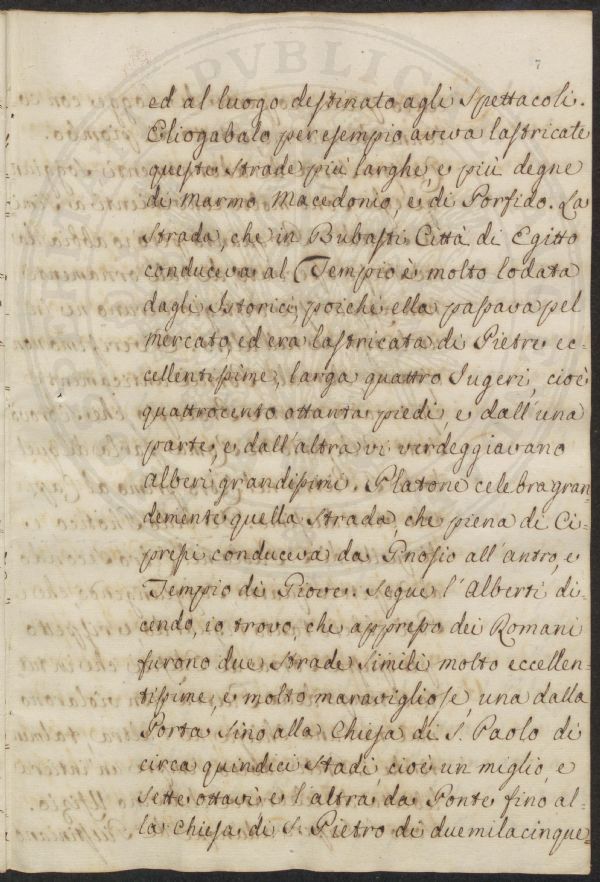 7
ed al luogo destinato agli spettacoli.
Eliogabalo per esempio aveva lastricate
queste strade più larghe, e più degne
di Marmo Macedonio, e di Porfido. La
strada, che in Bubasti Città di Egitto
conduceva al Tempio è molto lodata
dagli Istorici, poichè ella passava pel
mercato, ed era lastricata di Pietre ec-
cellentissime, larga quattro Jugeri, cioè
quattrocento ottanta piedi, e dall'una
parte, e dall'altra vi verdeggiavano
alberi grandissimi. Platone celebra gran
demente quella strada, che piena di Ci-
pressi conduceva da Gnosio all'antro, e
Tempio di Giove. Segue l'Alberti di-
cendo, io trovo, che appresso dei Romani
furono due strade simili molto eccellen-
tissime, e molto maravigliose, una dalla
Porta sino alla Chiesa di S. Paolo di
circa quindici stadi, cioè un miglio, e
sette ottavi e l'altra da Ponte fino al-
la Chiesa di S. Pietro di duemilacinque-